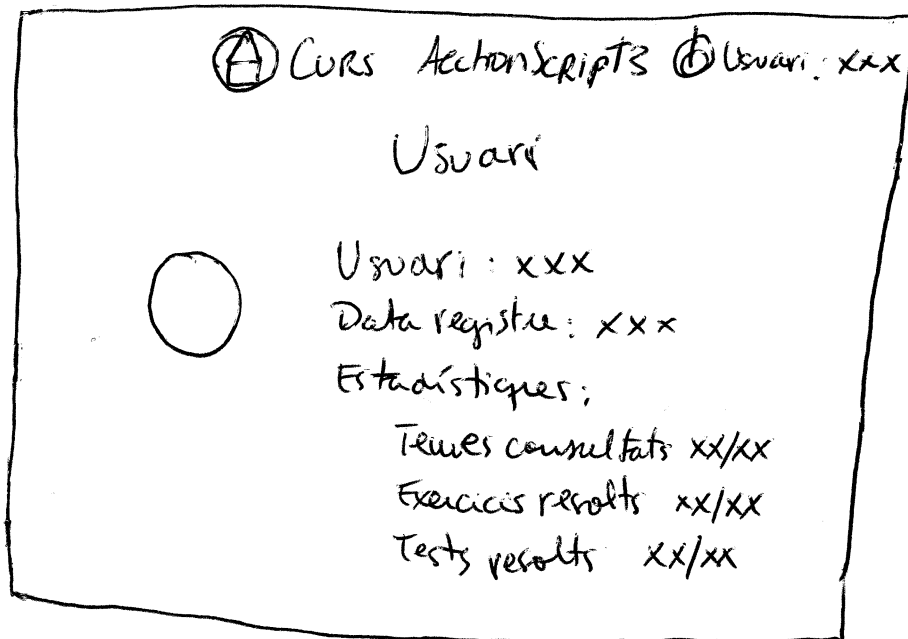 Curs AcctionScript3 Usuari: xxx
Usuari
Usuari: xxx
Data registre: xxx
Estadístiques:
Temes consultats xx/xx
Exercicis resolts xx/xx
Tests resolts xx/xx